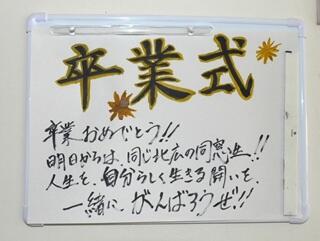 卒業式
卒業おめでとう!!
明日からは、同じ北広の同窓生!!
人生を、自分らしく生きる闘いを、
一緒に、がんばろうぜ!!!